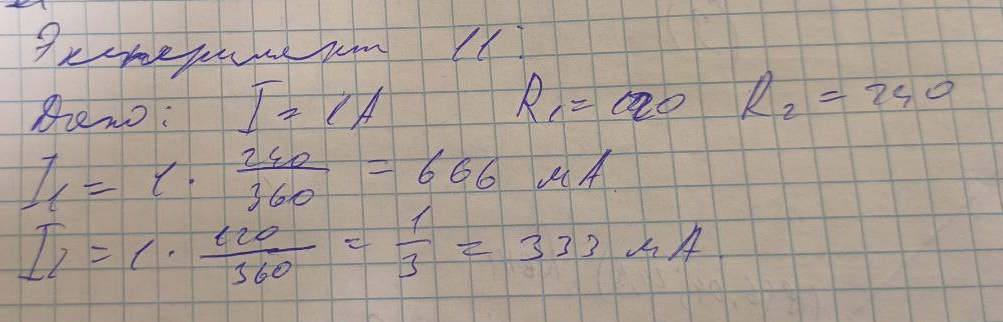 Эксперимент 11:
Дано: I = 1A R₁ = 120 R₂ = 240
I₁ = 1 · 240/360 = 666 мА.
I₂ = 1 · 120/360 = 1/3 = 333 мА.